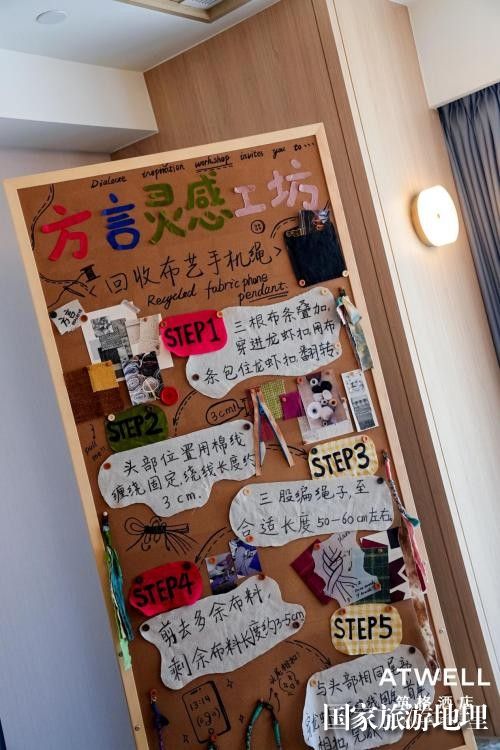 workshop invites you to...
方言灵感工坊
<回收布艺手机绳>
Recycled fabric phone
pendant.
方言
STEP1
三根布条叠加,
穿进龙虾扣,用布
条包住龙虾扣,翻转
3cm!
pull
me
STEP2
头部位置用棉线
缠绕固定绕线长度约
3cm.
STEP3
三股编绳子,至
合适长度50-60cm左右
STEP4
剪去多余布料,
剩余布料长度约3-5cm
STEP5
与头部相同
13:14
ATWELL
筑格酒店
国家旅游地理